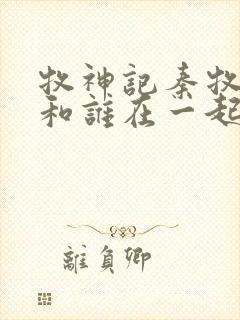 牧神記秦牧
和誰在一起
離負卿